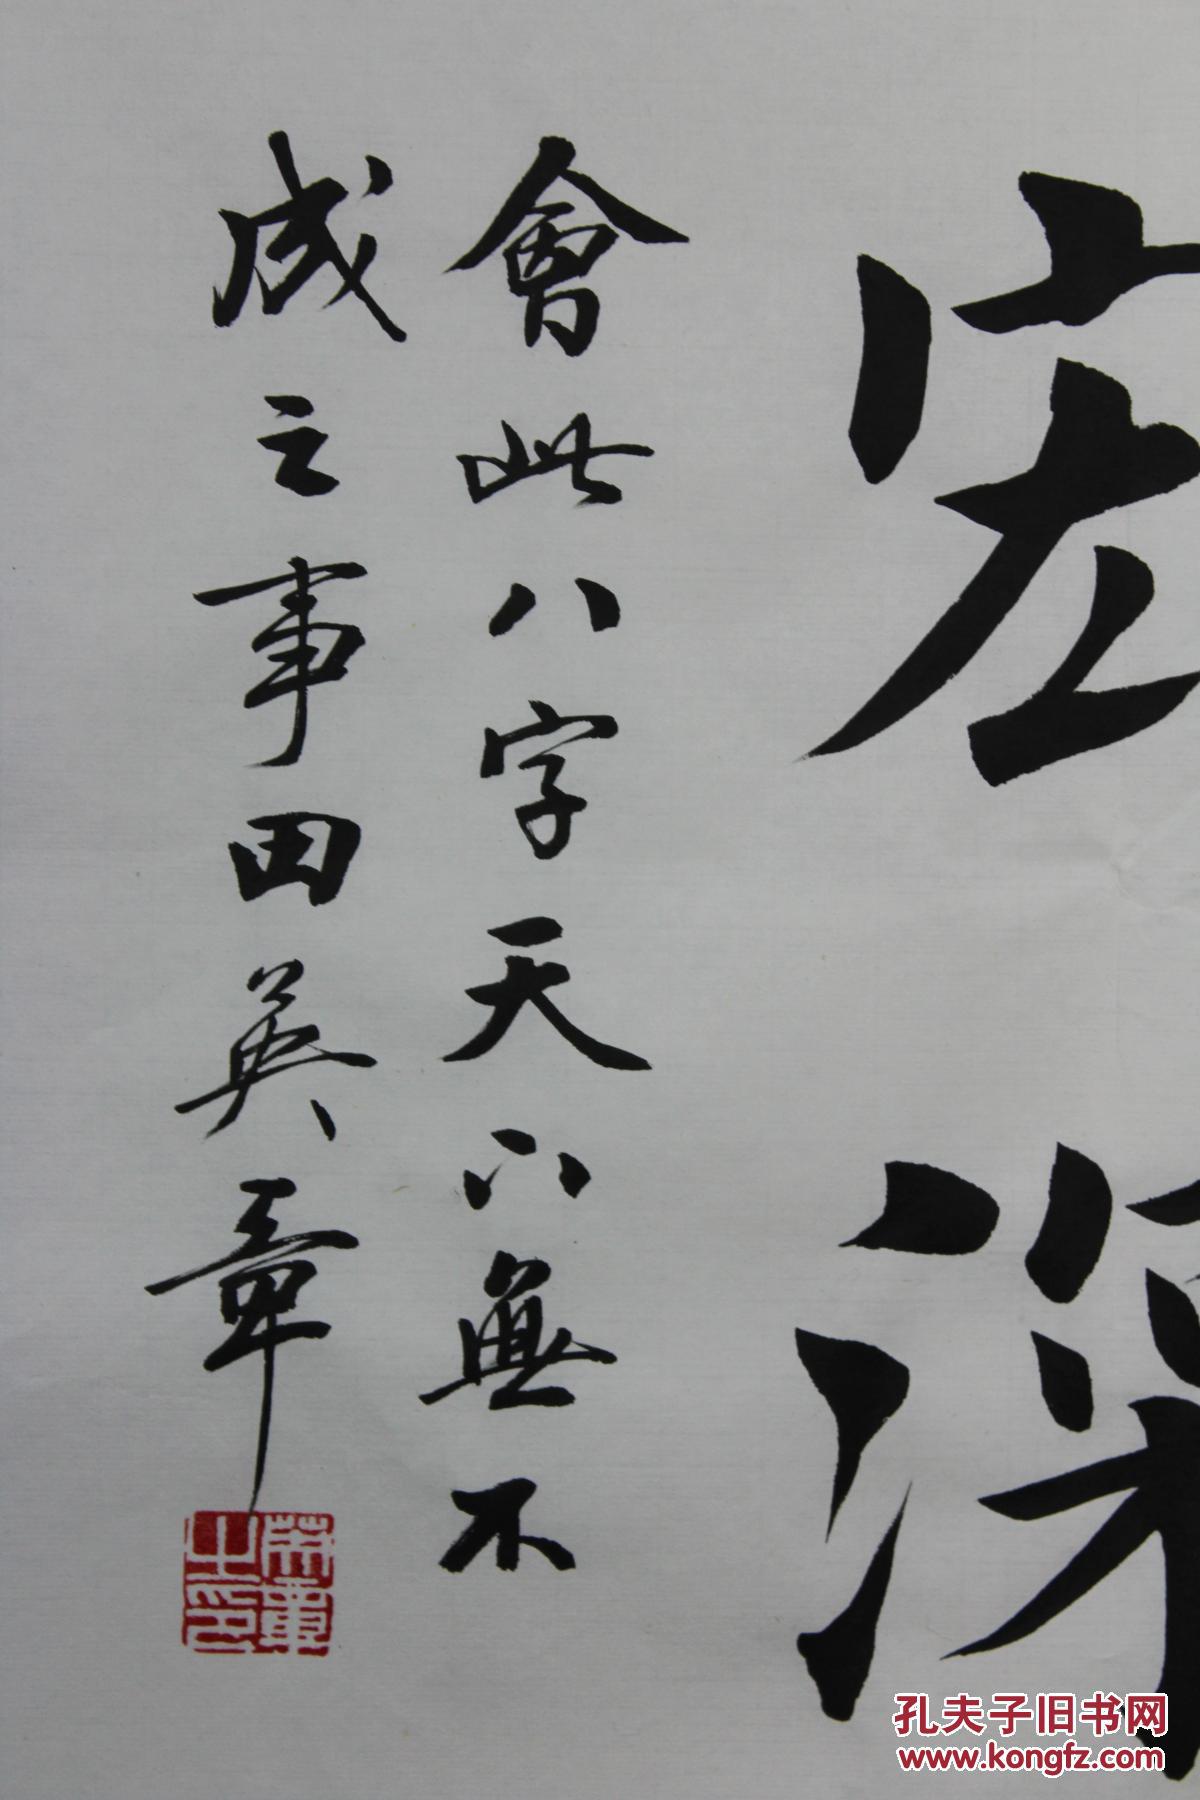 宏深
會此八字天下無不
成之事田英章
英章之印
孔夫子旧书网
www.kongfz.com